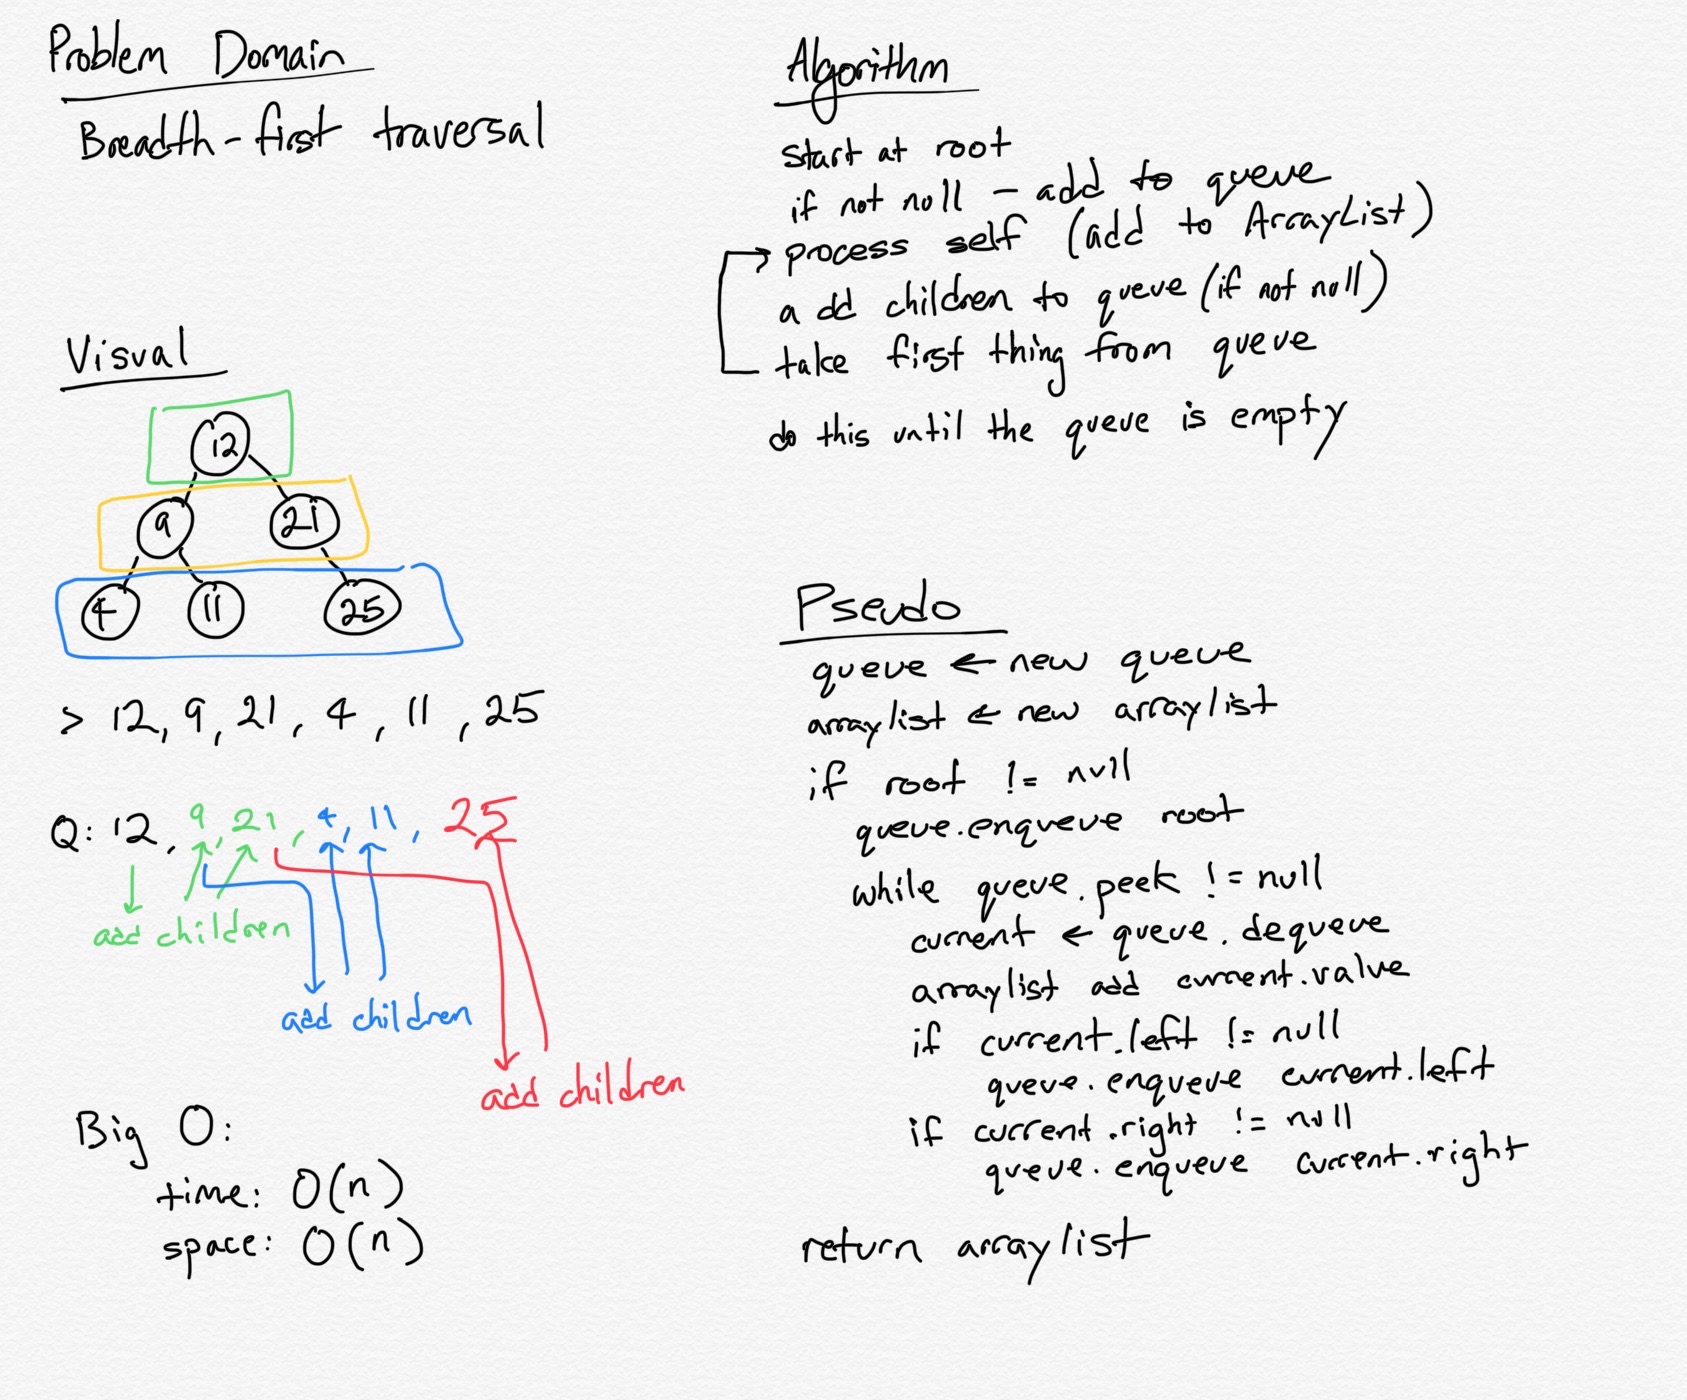 Problem Domain
Breadth-first traversal
Visual
12
9 21
4 11 25
> 12, 9, 21, 4, 11, 25
Q: 12, 9, 21, 4, 11, 25
add children
add children
add children
Big O:
time: O(n)
space: O(n)
Algorithm
start at root
if not null - add to queue
process self (add to ArrayList)
add children to queue (if not null)
take first thing from queue
do this until the queue is empty
Pseudo
queue ← new queue
arraylist ← new arraylist
if root != null
queue.enqueue root
while queue.peek != null
current ← queue.dequeue
arraylist add current.value
if current.left != null
queue.enqueue current.left
if current.right != null
queue.enqueue current.right
return arraylist